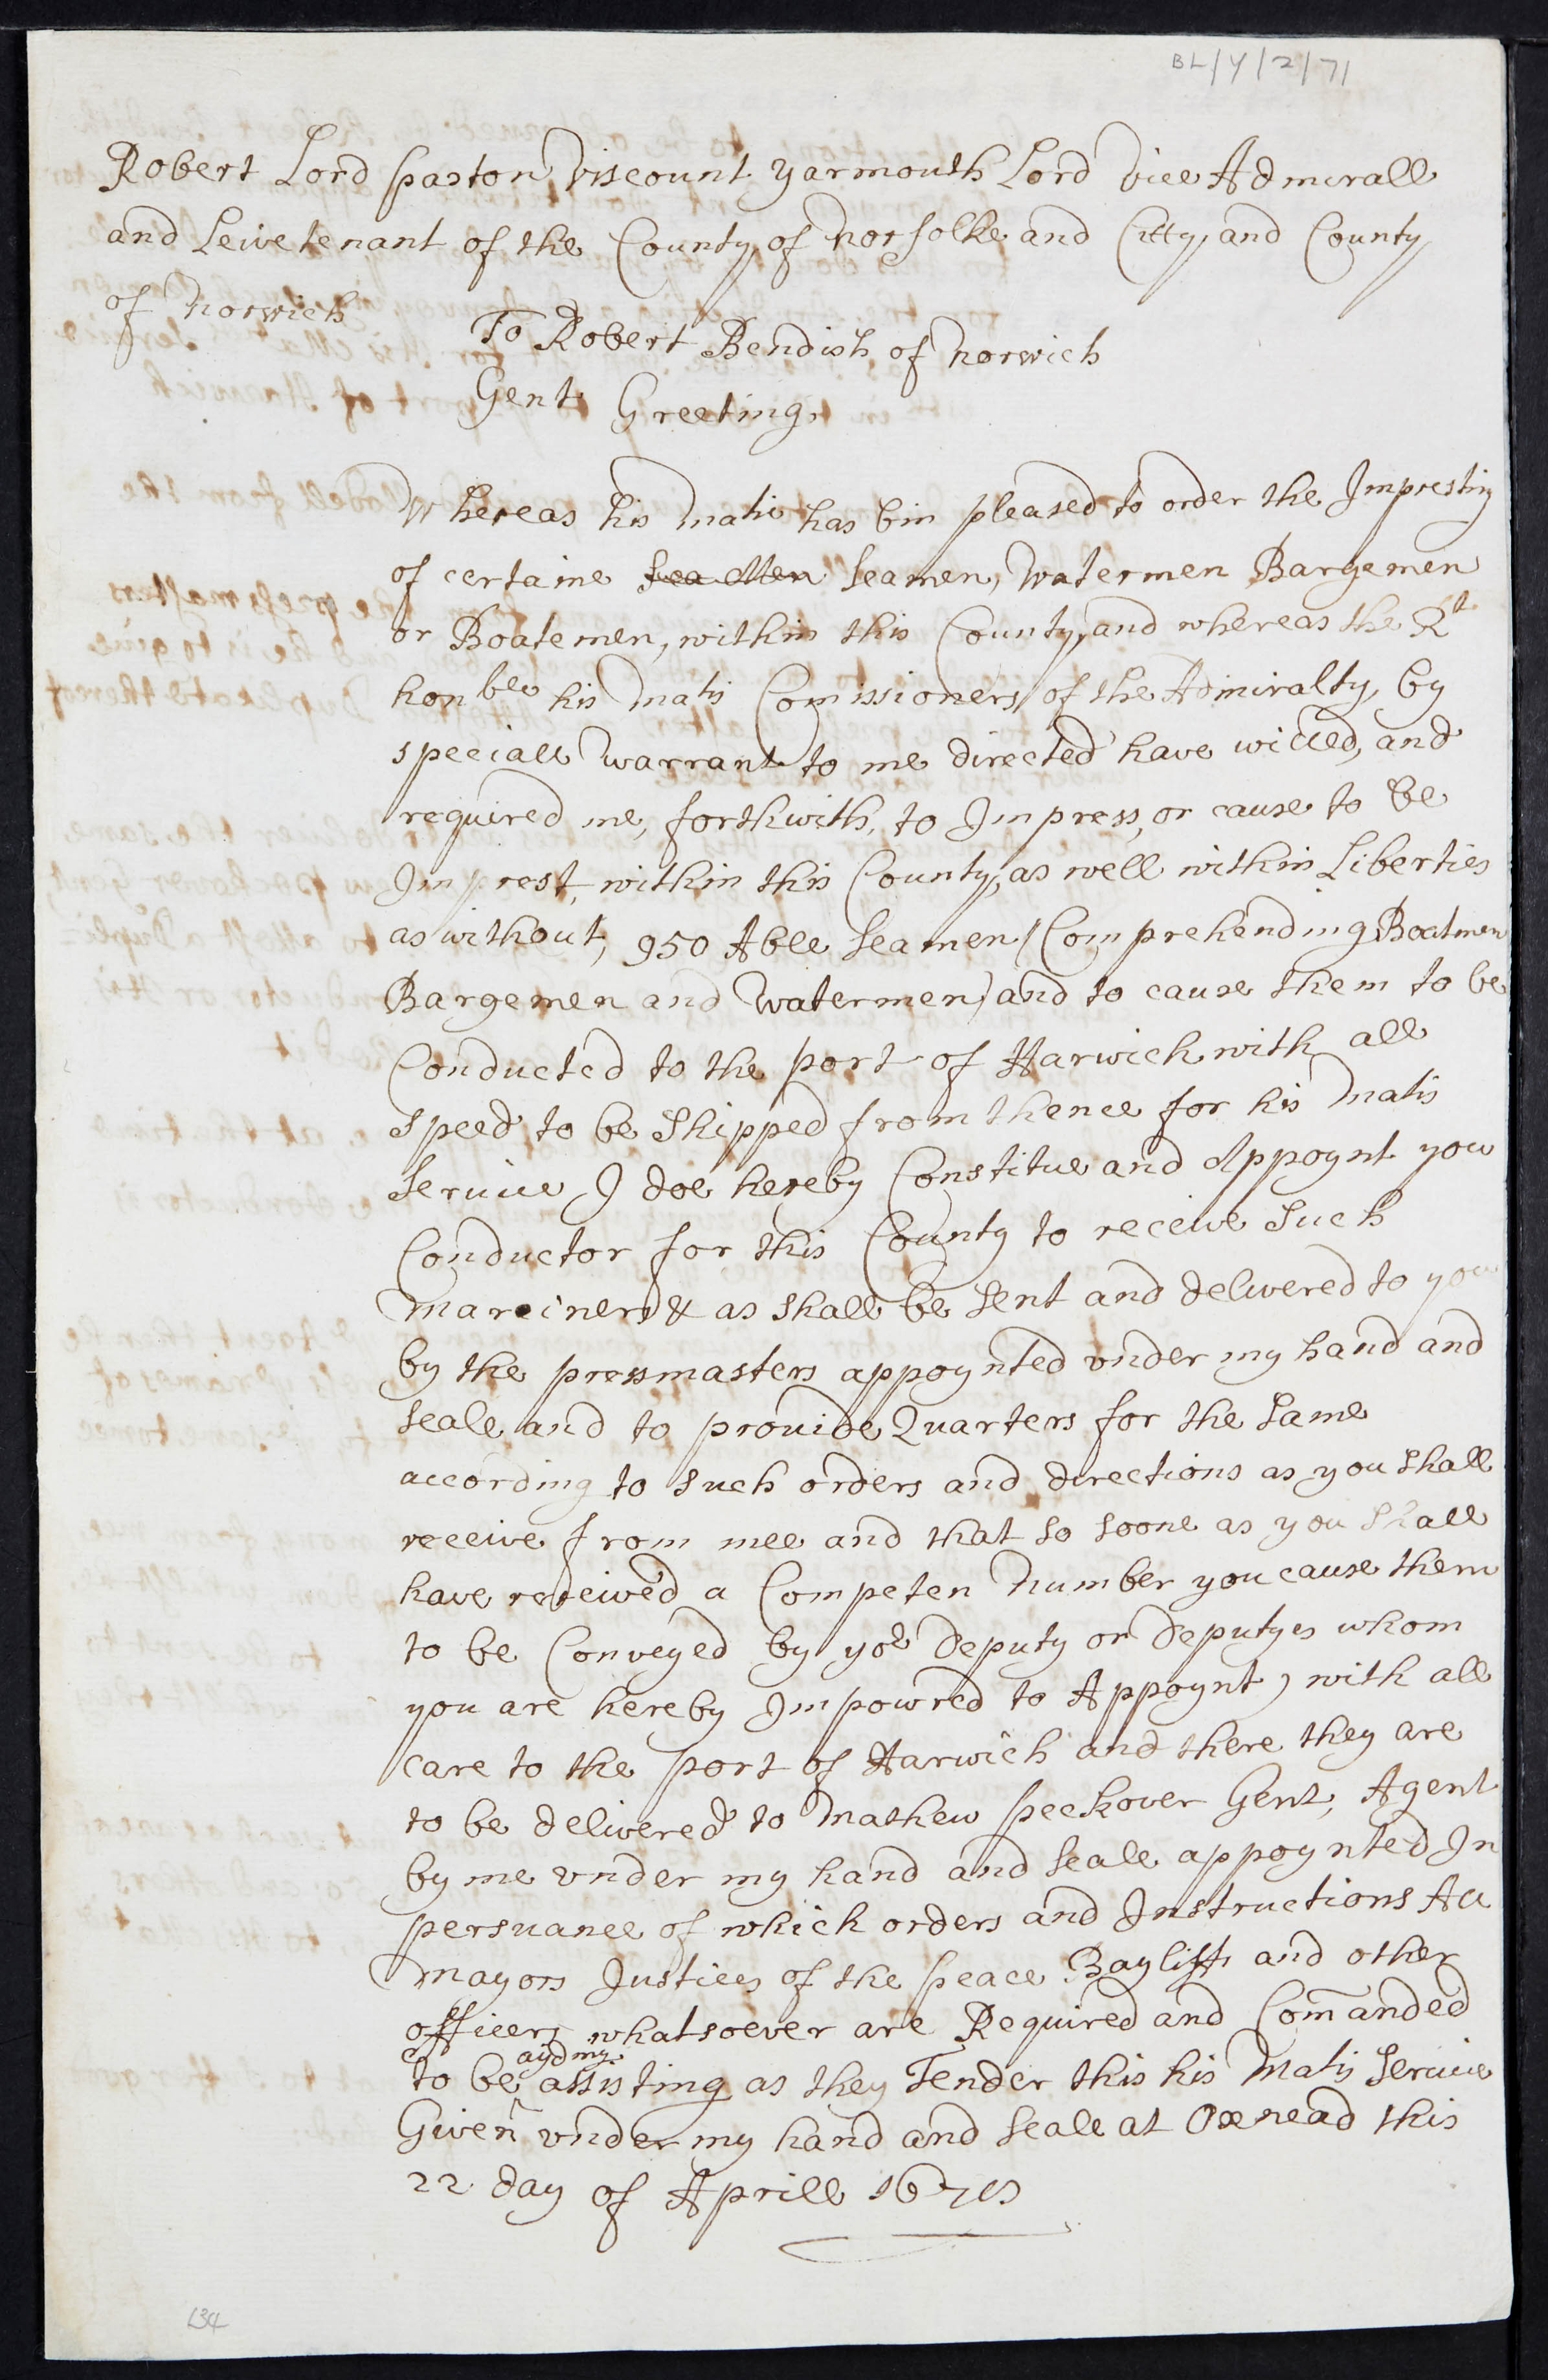 BL/Y/2/71
Robert Lord Paston Viscount Yarmouth Lord Vice Admirall
and Leivetenant of the County of Norfolke and Citty and County
of Norwich
To Robert Bendish of Norwich
Gent Greeting
Whereas his Matie has bin pleased to order the Impresting
of certaine Sea Men Seamen, Watermen Bargemen
or Boatemen, within this County, and whereas the Rt
honble his Matis Comissioners of the Admiralty, by
speciall Warrant to me directed have willed, and
required me, forthwith, to Impress, or cause to be
Imprest, within this County, as well within Liberties
as without, 950 Able Seamen (Comprehending Boatmen
Bargemen and Watermen) and to cause them to be
Conducted to the port of Harwich with all
speed to be Shipped from thence for his Matis
Service, I doe hereby Constitue and Appoynt you
Conductor for this County to receive Such
Marriners & as shall be sent and delivered to you
by the pressmasters appoynted vnder my hand and
Seale and to provide Quarters for the Same
according to such orders and directions as you Shall
receive from mee and that so soone as you Shall
have received a Competen Number you cause them
to be Conveyed by yor deputy or deputyes whom
you are hereby Impowred to Appoynt, with all
care to the port of Harwich and there they are
to be delivered to Mathew Peckover Gent, Agent
by me vnder my hand and Seale appoynted In
persuance of which orders and Instructions All
Mayors Justices of the peace Bayliffs and other
officers whatsoever are Required and Com̃anded
ayding
to be assisting as they Tender this his Matis Service
Given vnder my hand and Seale at Oxnead this
22 day of Aprill
134